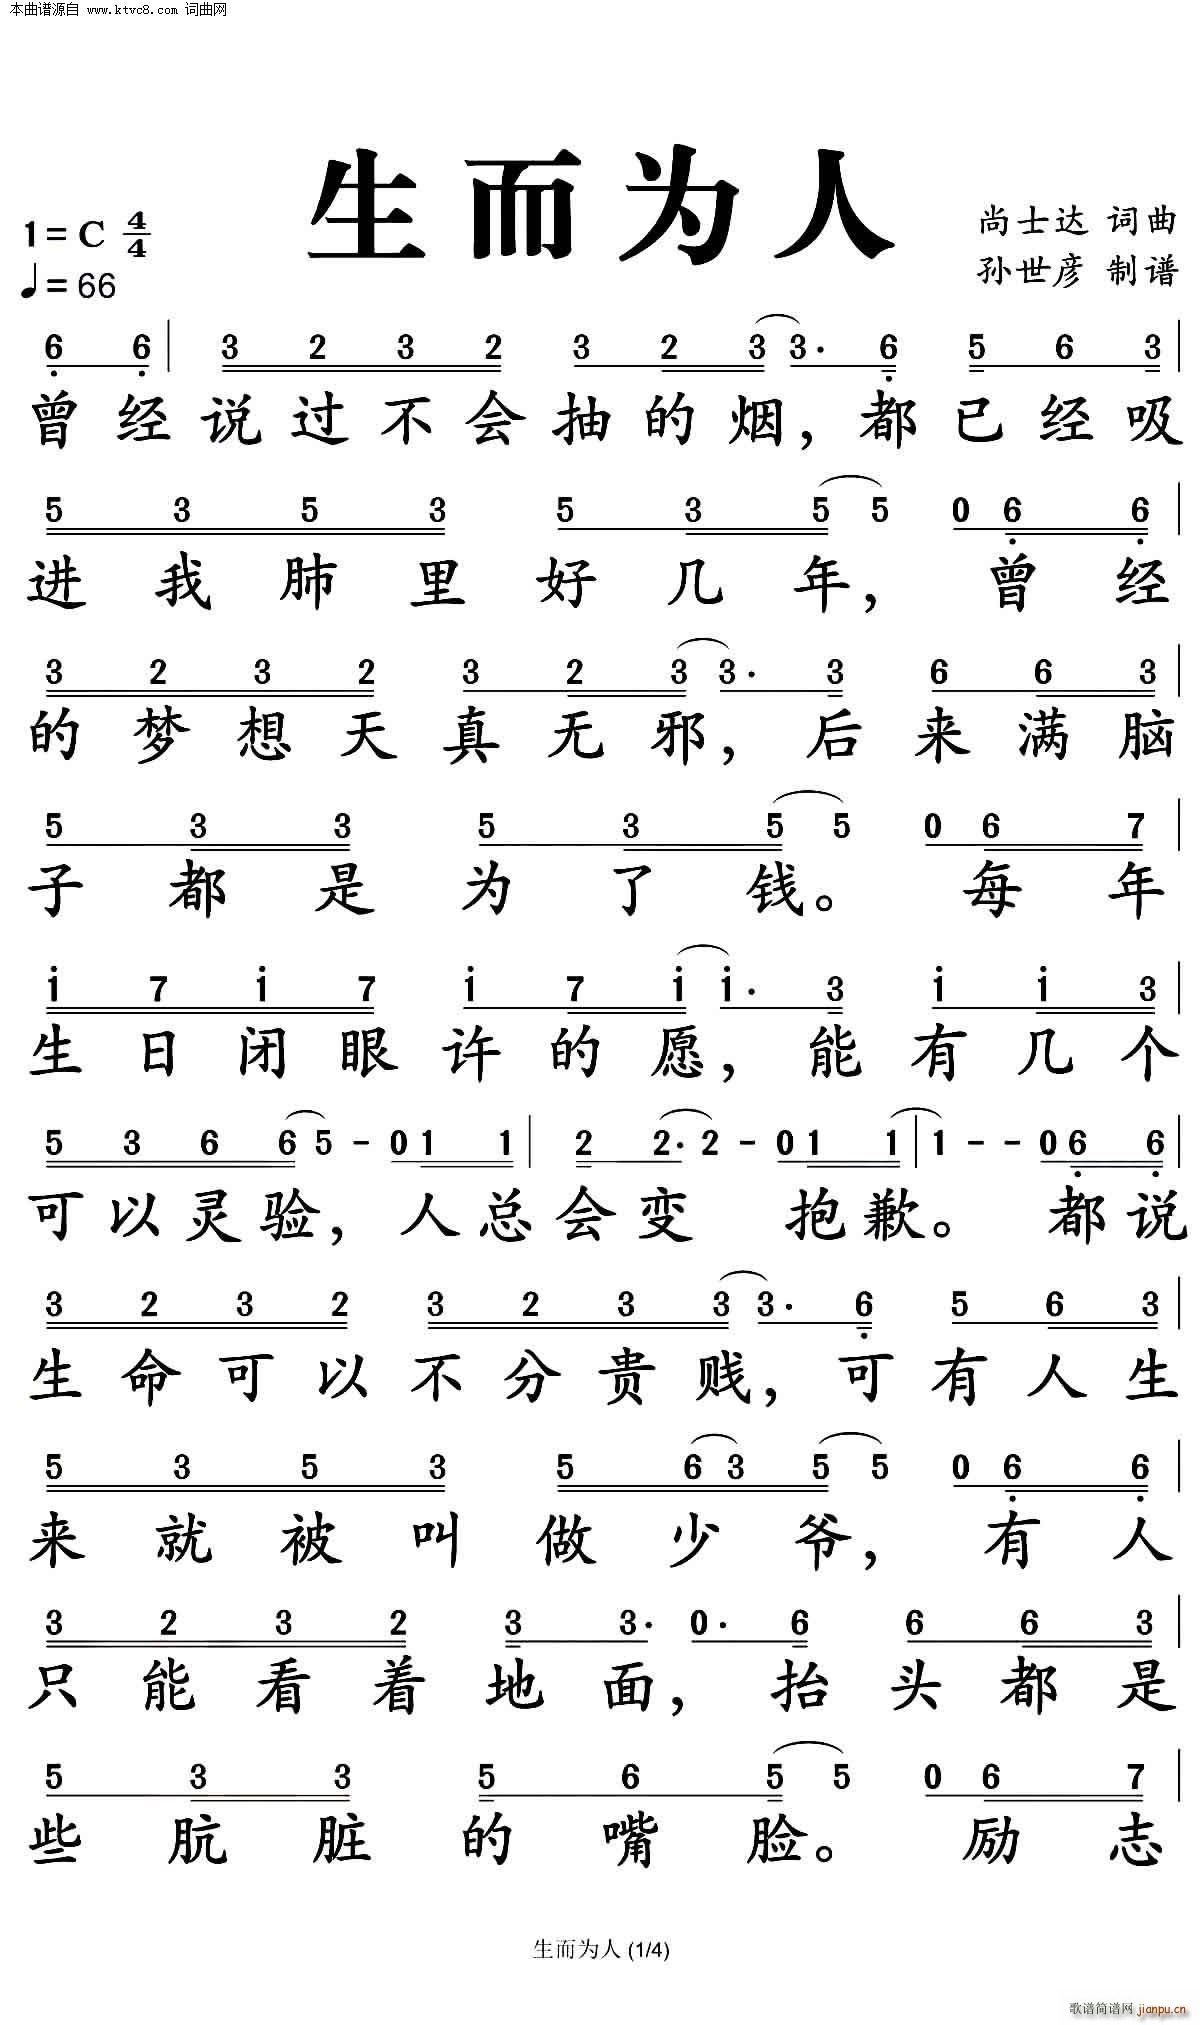 本曲谱源自 www.ktvc8.com 词曲网
生而为人
1=C 4/4
尚士达 词曲
♩=66
孙世彦 制谱
6 6 | 3 2 3 2 3 2 3 3· 6 5 6 3 |
曾经说过不会抽的烟，都已经吸
5 3 5 3 5 3 5 5 0 6 6 |
进我肺里好几年，曾经
3 2 3 2 3 2 3 3· 3 6 6 3 |
的梦想天真无邪，后来满脑
5 3 3 5 3 5 5 0 6 7 |
子都是为了钱。每年
i 7 i 7 i 7 i i· 3 i i 3 |
生日闭眼许的愿，能有几个
5 3 6 6 5 - 0 1 1 | 2 2· 2 - 0 1 1 | 1 - - 0 6 6 |
可以灵验，人总会变抱歉。都说
3 2 3 2 3 2 3 3 3· 6 5 6 3 |
生命可以不分贵贱，可有人生
5 3 5 3 5 6 3 5 5 0 6 6 |
来就被叫做少爷，有人
3 2 3 2 3 3· 0· 6 6 6 3 |
只能看着地面，抬头都是
5 3 3 5 6 5 5 0 6 7 |
些肮脏的嘴脸。励志
生而为人 (1/4)
歌谱简谱网 jianpu.cn